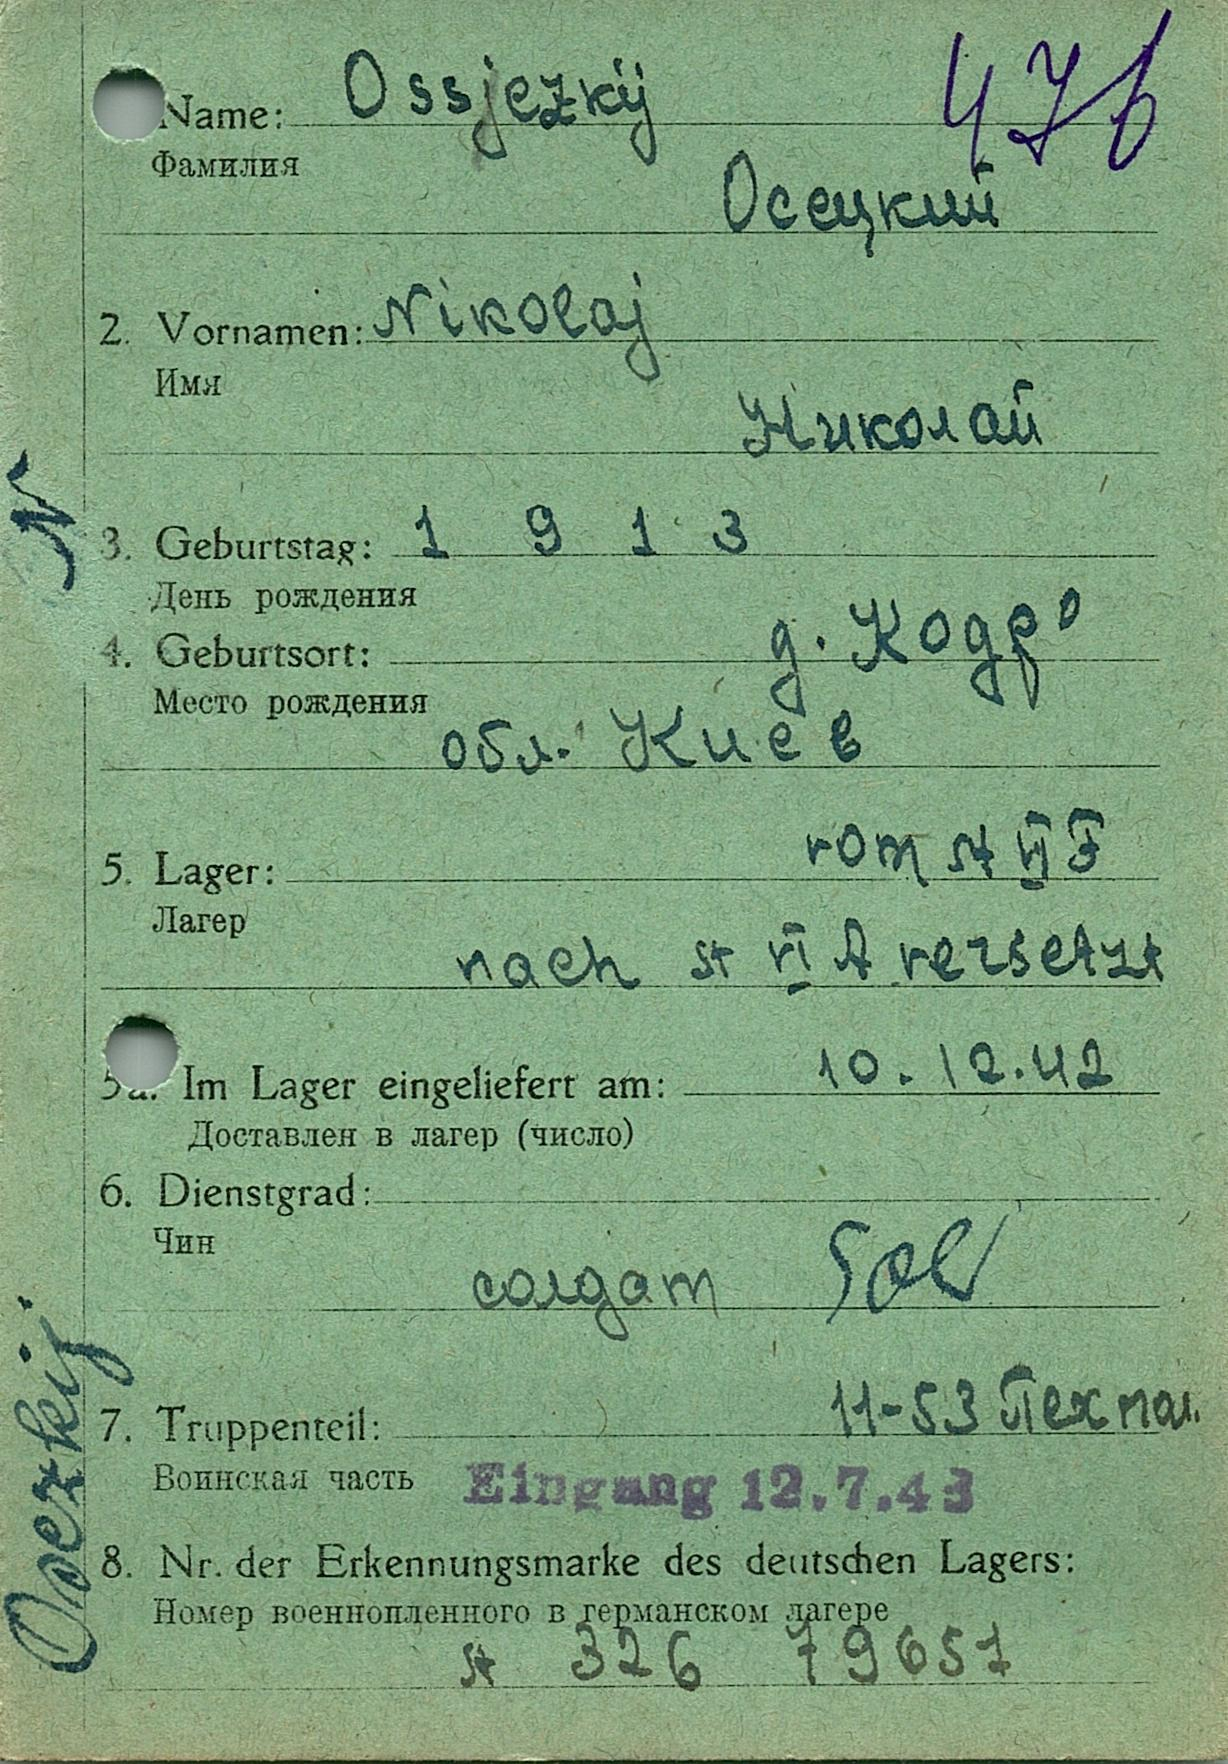 Name: Ossjezkij 47b
Фамилия
Осецкий
2. Vornamen: Nikolaj
Имя
Николай
N
3. Geburtstag: 1 9 1 3
День рождения
4. Geburtsort: д. Кодро
Место рождения
обл. Киев
5. Lager: vom St VI F
Лагер
nach St VI A versetzt
5a. Im Lager eingeliefert am: 10.12.42
Доставлен в лагер (число)
6. Dienstgrad:
Чин
солдат Sol
7. Truppenteil: 11-53 Пех пол.
Воинская часть Eingang 12.7.43
8. Nr. der Erkennungsmarke des deutschen Lagers:
Номер военнопленного в германском лагере
St 326 79651